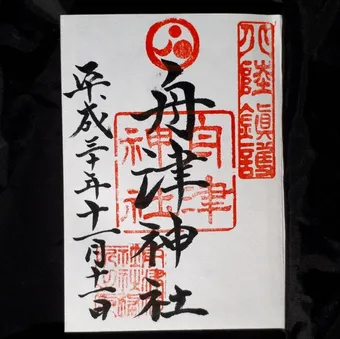 北陸鎮護
舟津神社
舟津
神社
平成三十年十一月十一日